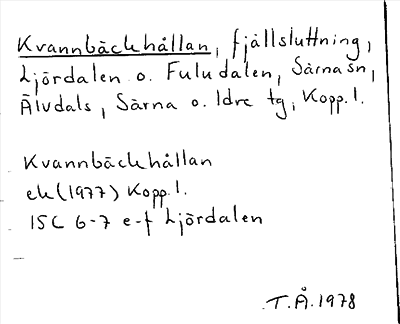 Kvannbäckhållan, fjällsluttning,
Ljördalen o. Fuludalen, Särna sn,
Älvdals, Särna o. Idre tg, Kopp. l.
Kvannbäckhållan
ek (1977) Kopp. l.
15C 6-7 e-f Ljördalen
T.Å. 1978